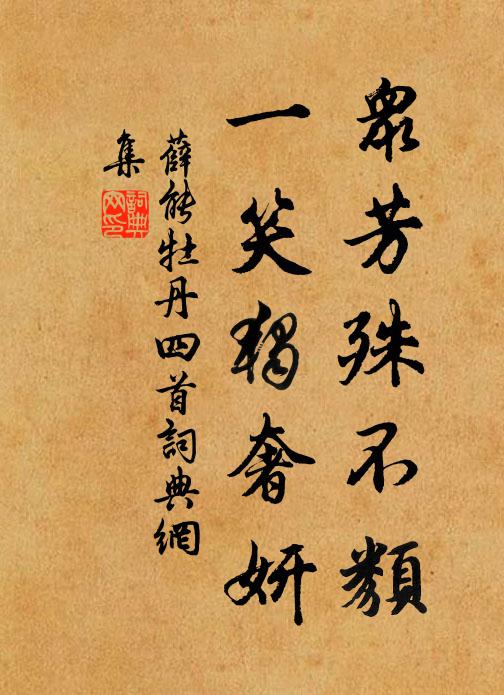 眾芳殊不類
一笑獨奢妍
薛能牡丹四首詞典網
集
詞典
网印